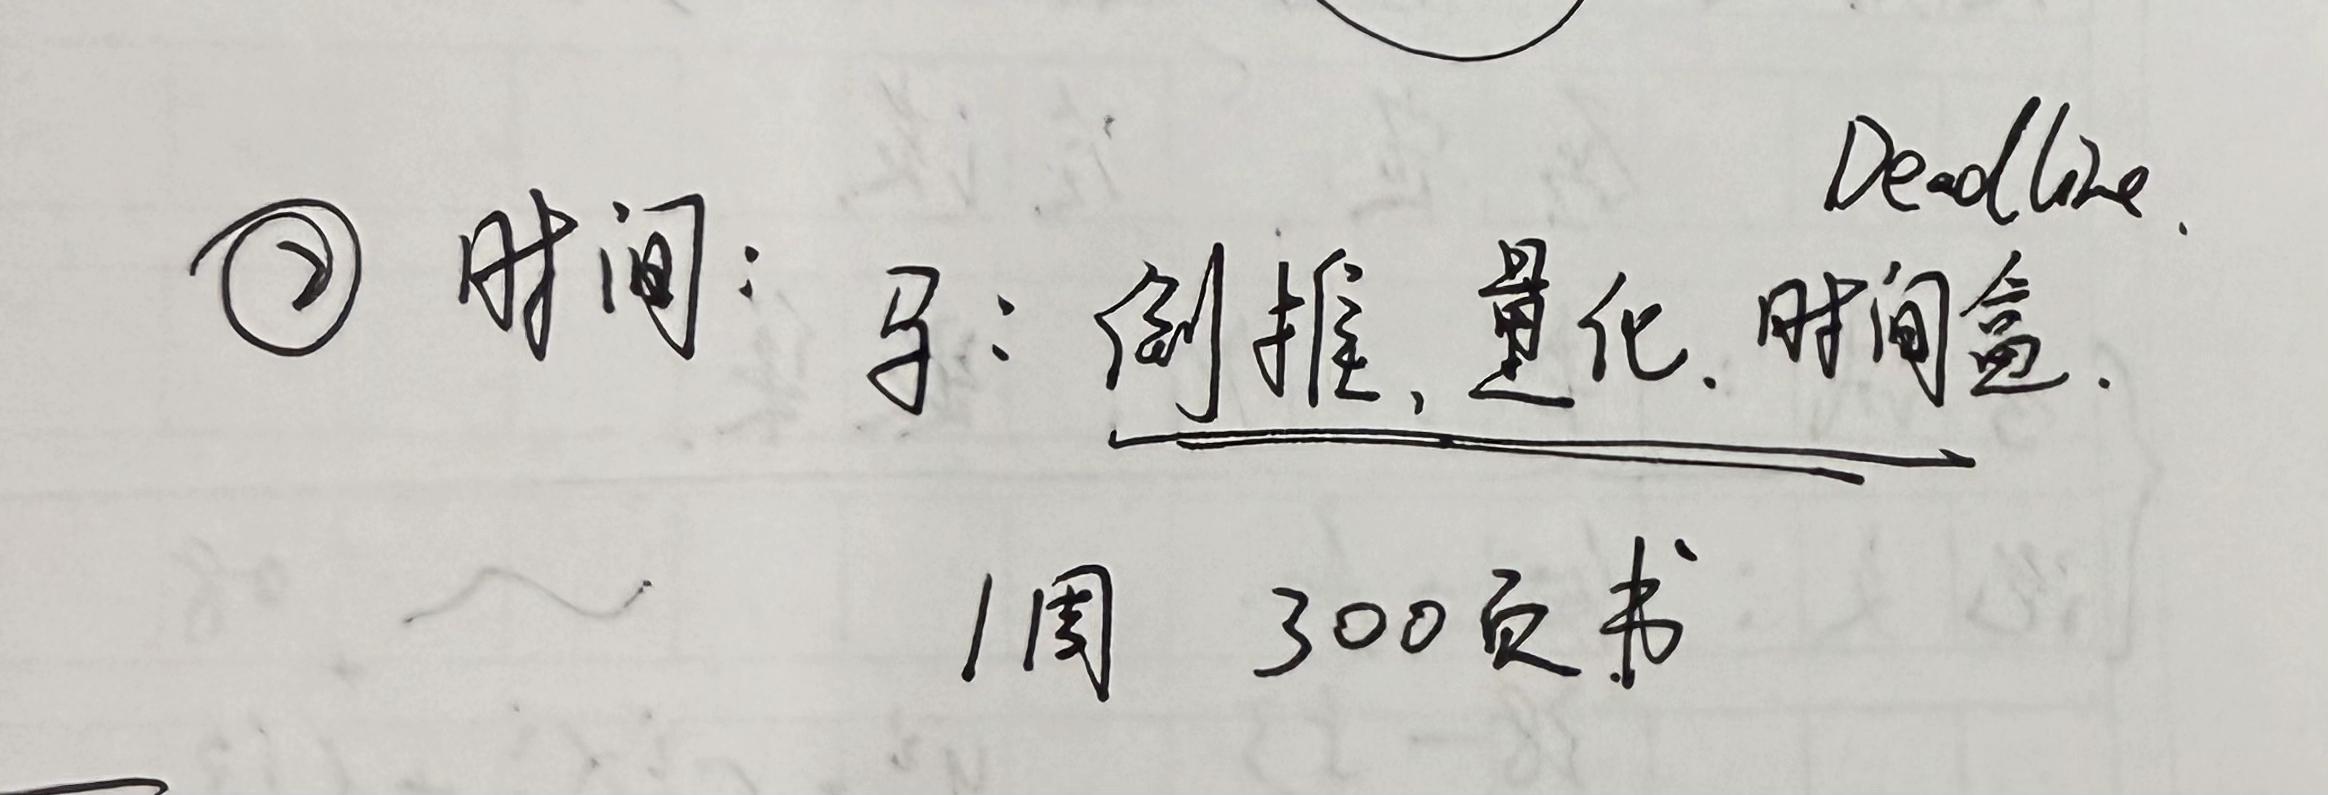 Deadline.
② 时间：马：倒推、量化、时间盒.
1周 300页书